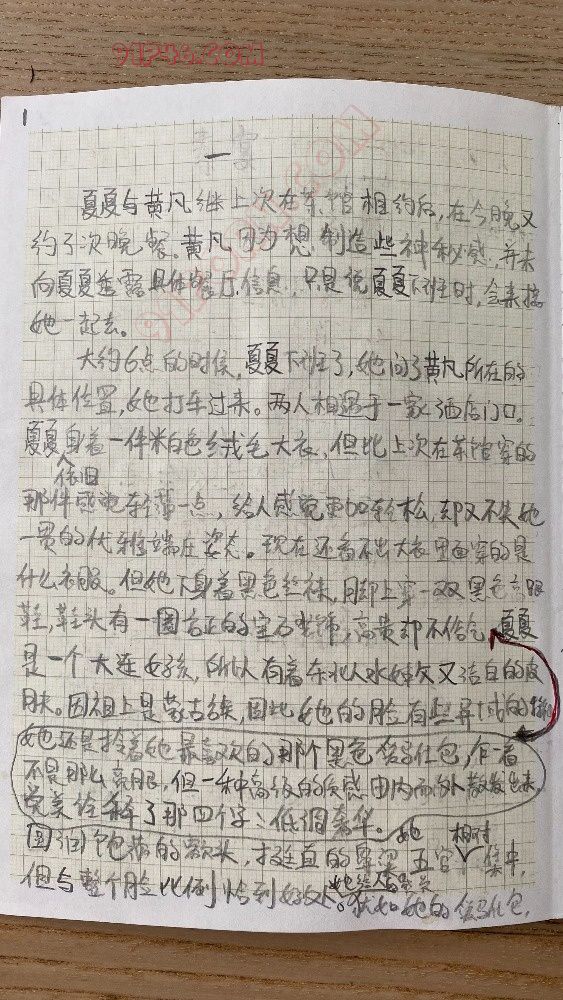 91246.COM
1
一
夏夏与黄凡继上次在茶馆相约后,在今晚又
约了次晚餐。黄凡因为想制造些神秘感,并未
向夏夏透露具体餐厅信息,只是说夏夏下班时,会来接
她一起去。
大约6点的时候,夏夏下班了,她问了黄凡所在的
具体位置,她打车过来。两人相遇于一家酒店门口。
夏夏身着一件米白色绒毛大衣,但比上次在茶馆穿的
依旧
那件感觉轻薄一点,给人感觉更加轻松,却又不失她
一贯的优雅端庄姿态。现在还看不出大衣里面穿的是
什么衣服。但她下身着黑色丝袜,脚上穿一双黑色高跟
鞋,鞋头有一圈方正的宝石坐饰,高贵却不俗气。夏夏
是一个大连女孩,所以有着东北人水嫩又洁白的皮
肤。因祖上是蒙古族,因此她的脸有些异域的
她还是拎着她最喜欢的那个黑色包,乍一看
不是那么亮眼,但一种高级的质感由内而外散发出来,
完美诠释了那四个字:低调奢华。
她 相对
圆润饱满的额头,挺直的鼻梁,五官集中,
但与整个脸比例恰到好处。她给人的感觉
犹如她的包,